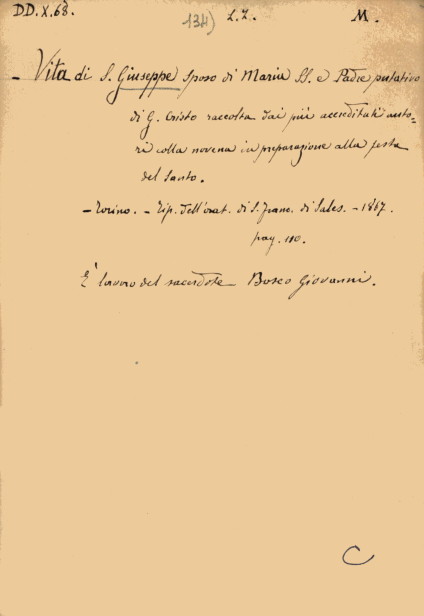 DD.X.68. 134) L.Z. M.
- Vita di S. Giuseppe sposo di Maria SS. e Padre putativo
di G. Cristo raccolta dai più accreditati auto=
ri colla novena in preparazione alla festa
del Santo.
- Torino. - Tip. dell'orat. di S. Franc. di Sales. - 1867.
pag. 110.
È lavoro del sacerdote Bosco Giovanni.
C